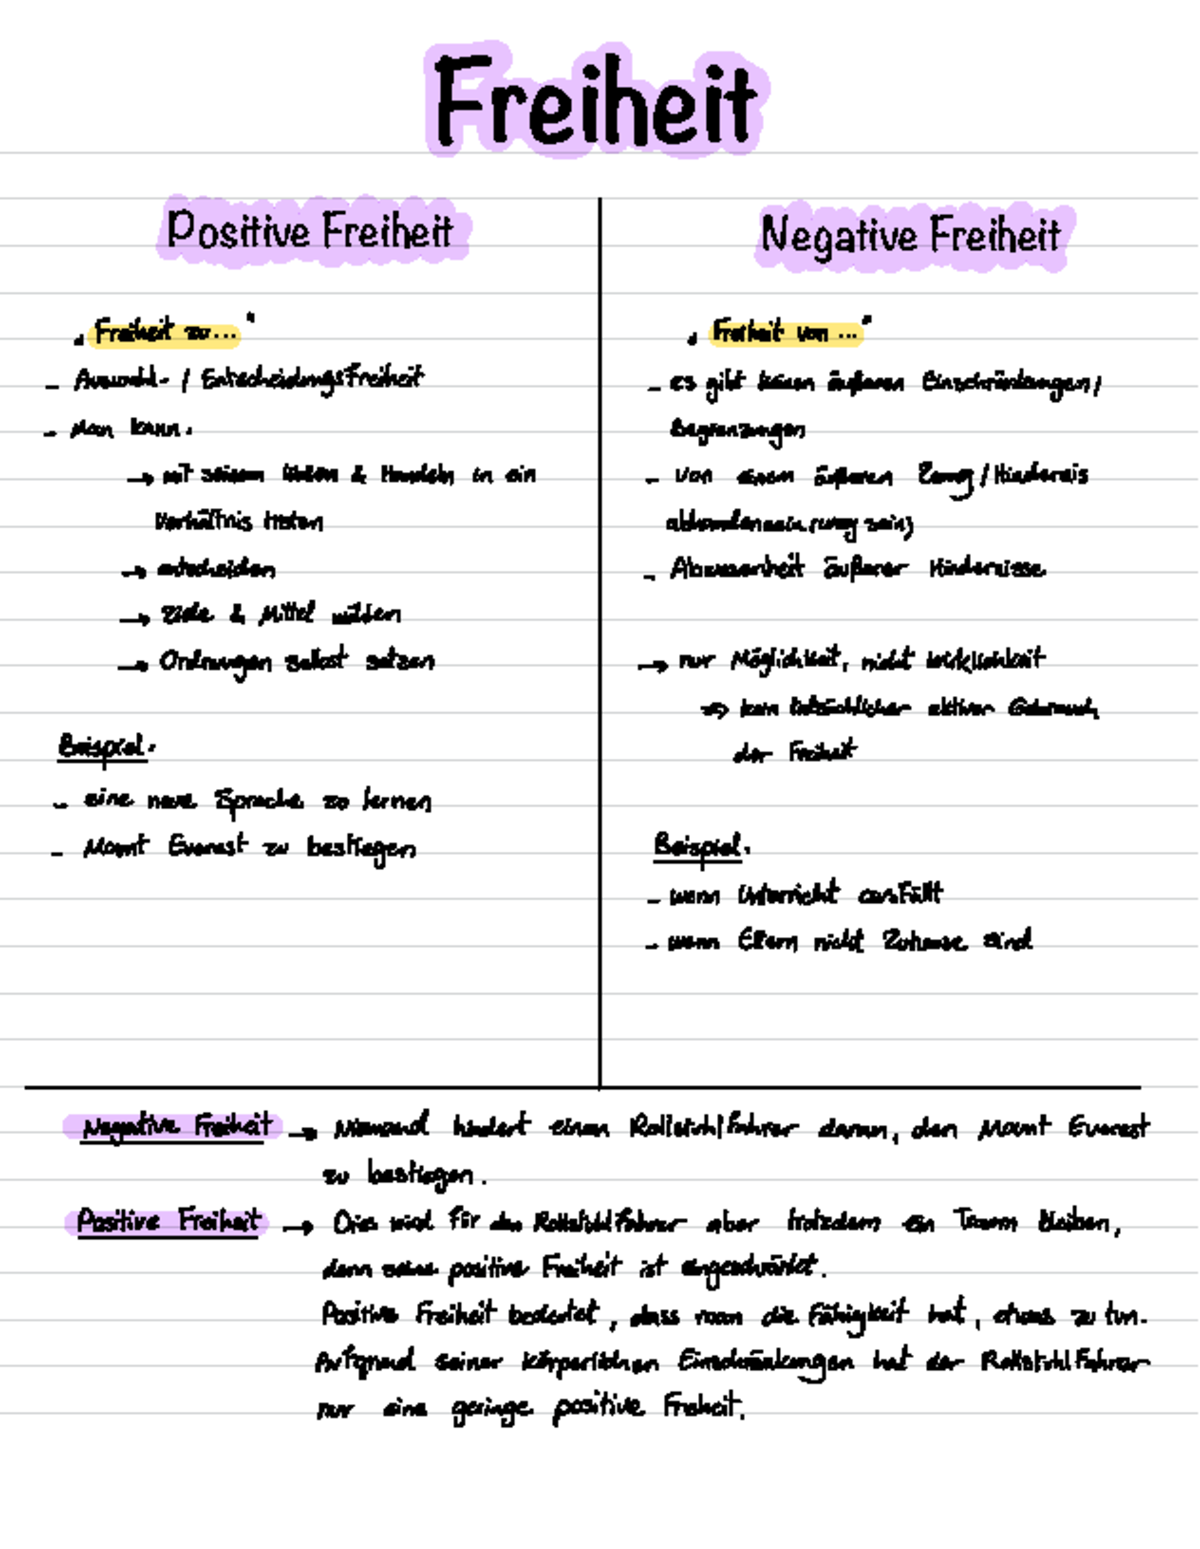 Freiheit
Positive Freiheit
„Freiheit zu..."
- Auswahl- / Entscheidungsfreiheit
- Man kann:
→ mit seinem Wesen & Handeln in ein
Verhältnis treten
→ entscheiden
→ Ziele & Mittel wählen
→ Ordnungen selbst setzen
Beispiel:
- eine neue Sprache zu lernen
- Mount Everest zu bestiegen
Negative Freiheit
„Freiheit von ..."
- es gibt keinen äußeren Einschränkungen/
Begrenzungen
- von einem äußeren Zwang/Hindernis
sein)
- Abwesenheit äußerer Hindernisse
→ nur Möglichkeit, nicht Wirklichkeit
=> kein tatsächlicher aktiver Gebrauch
der Freiheit
Beispiel:
- wenn Unterricht ausfällt
- wenn Eltern nicht Zuhause sind
Negative Freiheit → Niemand hindert einen Rollstuhlfahrer daran, den Mount Everest
zu bestiegen.
Positive Freiheit → Dies wird für den Rollstuhlfahrer aber trotzdem ein Traum bleiben,
denn seine positive Freiheit ist eingeschränkt.
Positive Freiheit bedeutet, dass man die Fähigkeit hat, etwas zu tun.
Aufgrund seiner körperlichen Einschränkungen hat der Rollstuhlfahrer
nur eine geringe positive Freiheit.